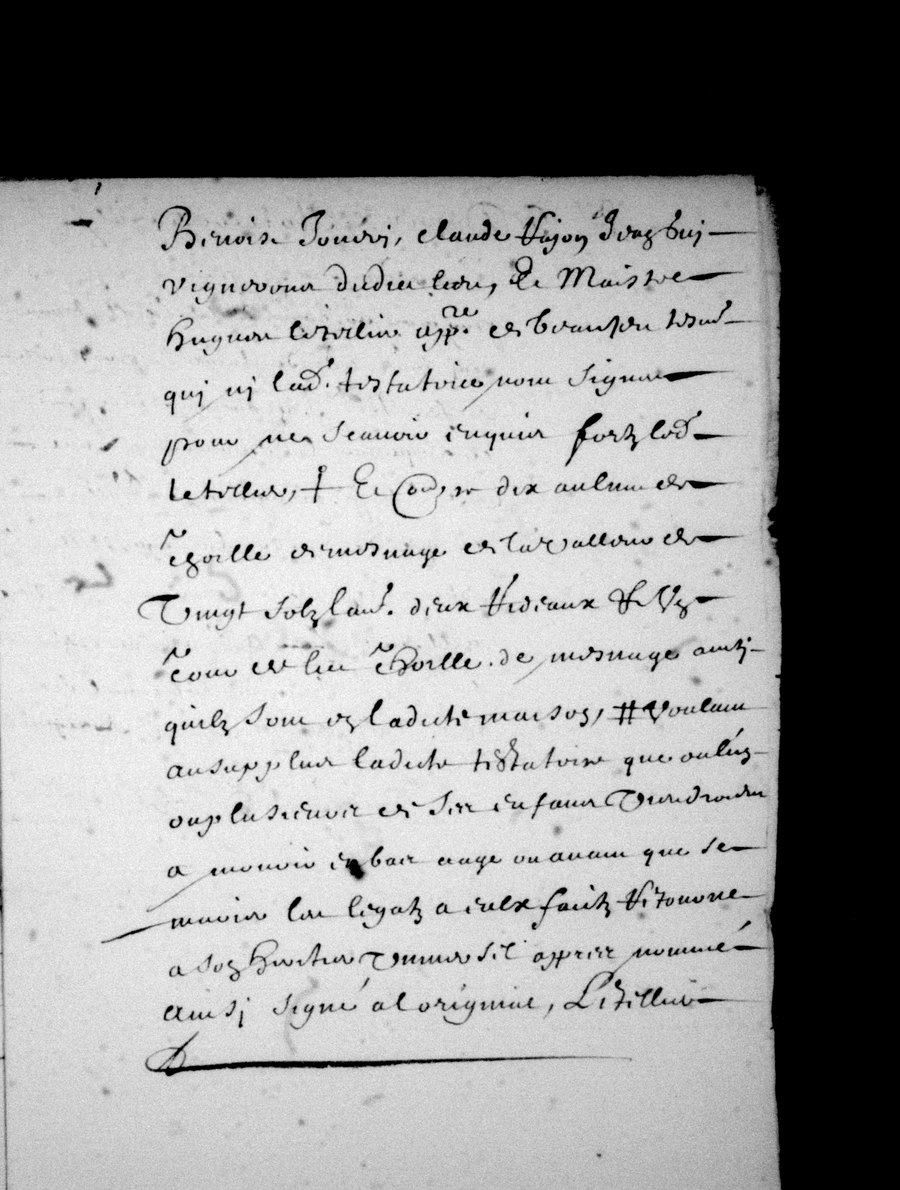 Benoist Joueri, claude Hujon Jeaz
vignerons dudict lieu, Et Maistre
hugues letellier app.re de beaujeu tesm.
quj nj lad. testatrice nont signes
pour ne scauoir enquis fortz led.
letellier, ╪ Et dix aulnes de
thoille de mesnage de la valleur de
Vingt solz laul. deux Rideaux &
tour de lict thoille de mesnage ainsj
quilz sont ez ladicte maison, # Voulant
au supplus ladicte testatoire que ou luz
ou plusieurs de ses enfans viendroient
a mourir en bas eage ou auant que se
marier les legatz a eulx faictz Retourne
a soz heritier vniuersel appres nommé
ainsj signé a loriginal, Letellier